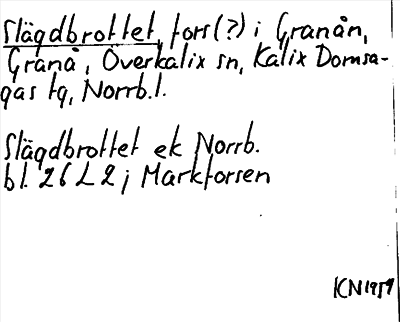 Slägdbrottet, fors(?) i Granån,
Granå, Överkalix sn, Kalix Domsa-
gas tg, Norrb.l.
Slägdbrottet ek Norrb.
bl. 26 L 2 j Markforsen
KCN 1959